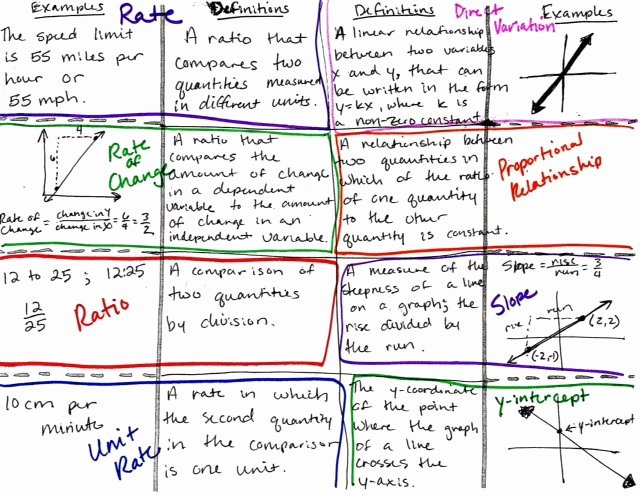 Examples
Rate
Definitions
The speed limit
is 55 miles per
hour or
55 mph.
A ratio that
compares two
quantities measured
in different units.
Definitions
Direct
Variation
Examples
A linear relationship
between two variables
x and y, that can
be written in the form
y=kx, where k is
a non-zero constant.
4
6
Rate
of
Change
Rate of
Change = change in Y / change in X = 6/4 = 3/2
A ratio that
compares the
amount of change
in a dependent
variable to the amount
of change in an
independent variable.
A relationship between
two quantities in
which of the ratio
of one quantity
to the other
quantity is constant.
Proportional
Relationship
12 to 25 ; 12:25
12/25
Ratio
A comparison of
two quantities
by division.
A measure of the
steepness of a line
on a graph; the
rise divided by
the run.
Slope = rise/run = 3/4
Slope
run
rise
(2,2)
(-2,-1)
10 cm per
minute
Unit
Rate
A rate in which
the second quantity
in the comparison
is one unit.
The y-coordinate
of the point
where the graph
of a line
crosses the
y-axis.
y-intercept
y-intercept